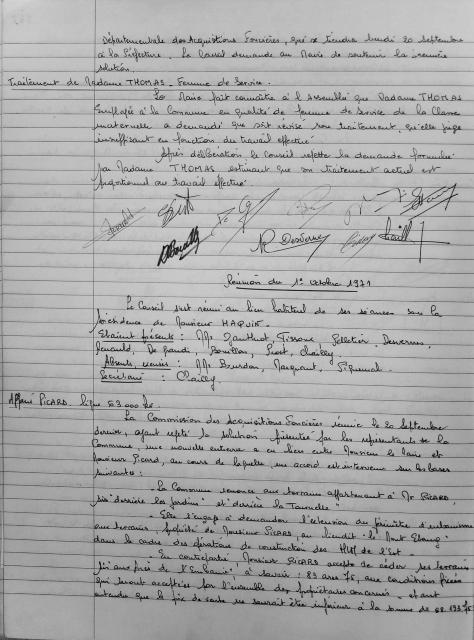 Départementale des Acquisitions Foncières, qui se tiendra lundi 20 Septembre
à la Préfecture. Le Conseil demande au Maire de soutenir la première
solution.
Traitement de Madame THOMAS. Femme de Service.
Le Maire fait connaître à l'Assemblée que Madame THOMAS
Employée à la Commune en qualité de femme de Service de la Classe
maternelle a demandé que soit révisé son traitement, qu'elle juge
insuffisant en fonction du travail effectué.
Après délibération le Conseil rejette la demande formulée
par Madame THOMAS estimant que son traitement actuel est
proportionnel au travail effectué.
Réunion du 1er octobre 1971
Le Conseil s'est réuni au lieu habituel de ses séances sous la
présidence de Monsieur HAQUIN.
Etaient présents : MM. Tissoux, Pelletier, Desvernes,
De Bouillon, Chailly.
Absents, excusés : MM. Bourdon,
Secrétaire : Chailly.
Affaire PICARD.
La Commission des Acquisitions Foncières réunie le 20 Septembre
dernier, ayant rejeté la solution présentée par les représentants de la
Commune, une nouvelle entrevue a eu lieu entre Monsieur le Maire et
Monsieur Picard, au cours de laquelle un accord est intervenu sur les bases
suivantes :
- La Commune renonce aux terrains appartenant à Mr PICARD,
sis "derrière les Jardins" et "derrière la
- Elle s'engage à demander l'extension du périmètre d'urbanisme
aux terrains, propriété de Monsieur PICARD, au lieudit : "le Mont
dans le cadre des opérations de construction des HLM de l'Est.
- En contrepartie Monsieur PICARD accepte de céder ses terrains
sis aux près de à savoir : 83 ares 75, aux conditions fixées
qui seront acceptées par l'ensemble des propriétaires concernés - étant
entendu que le prix de vente ne saurait être inférieur à la somme de